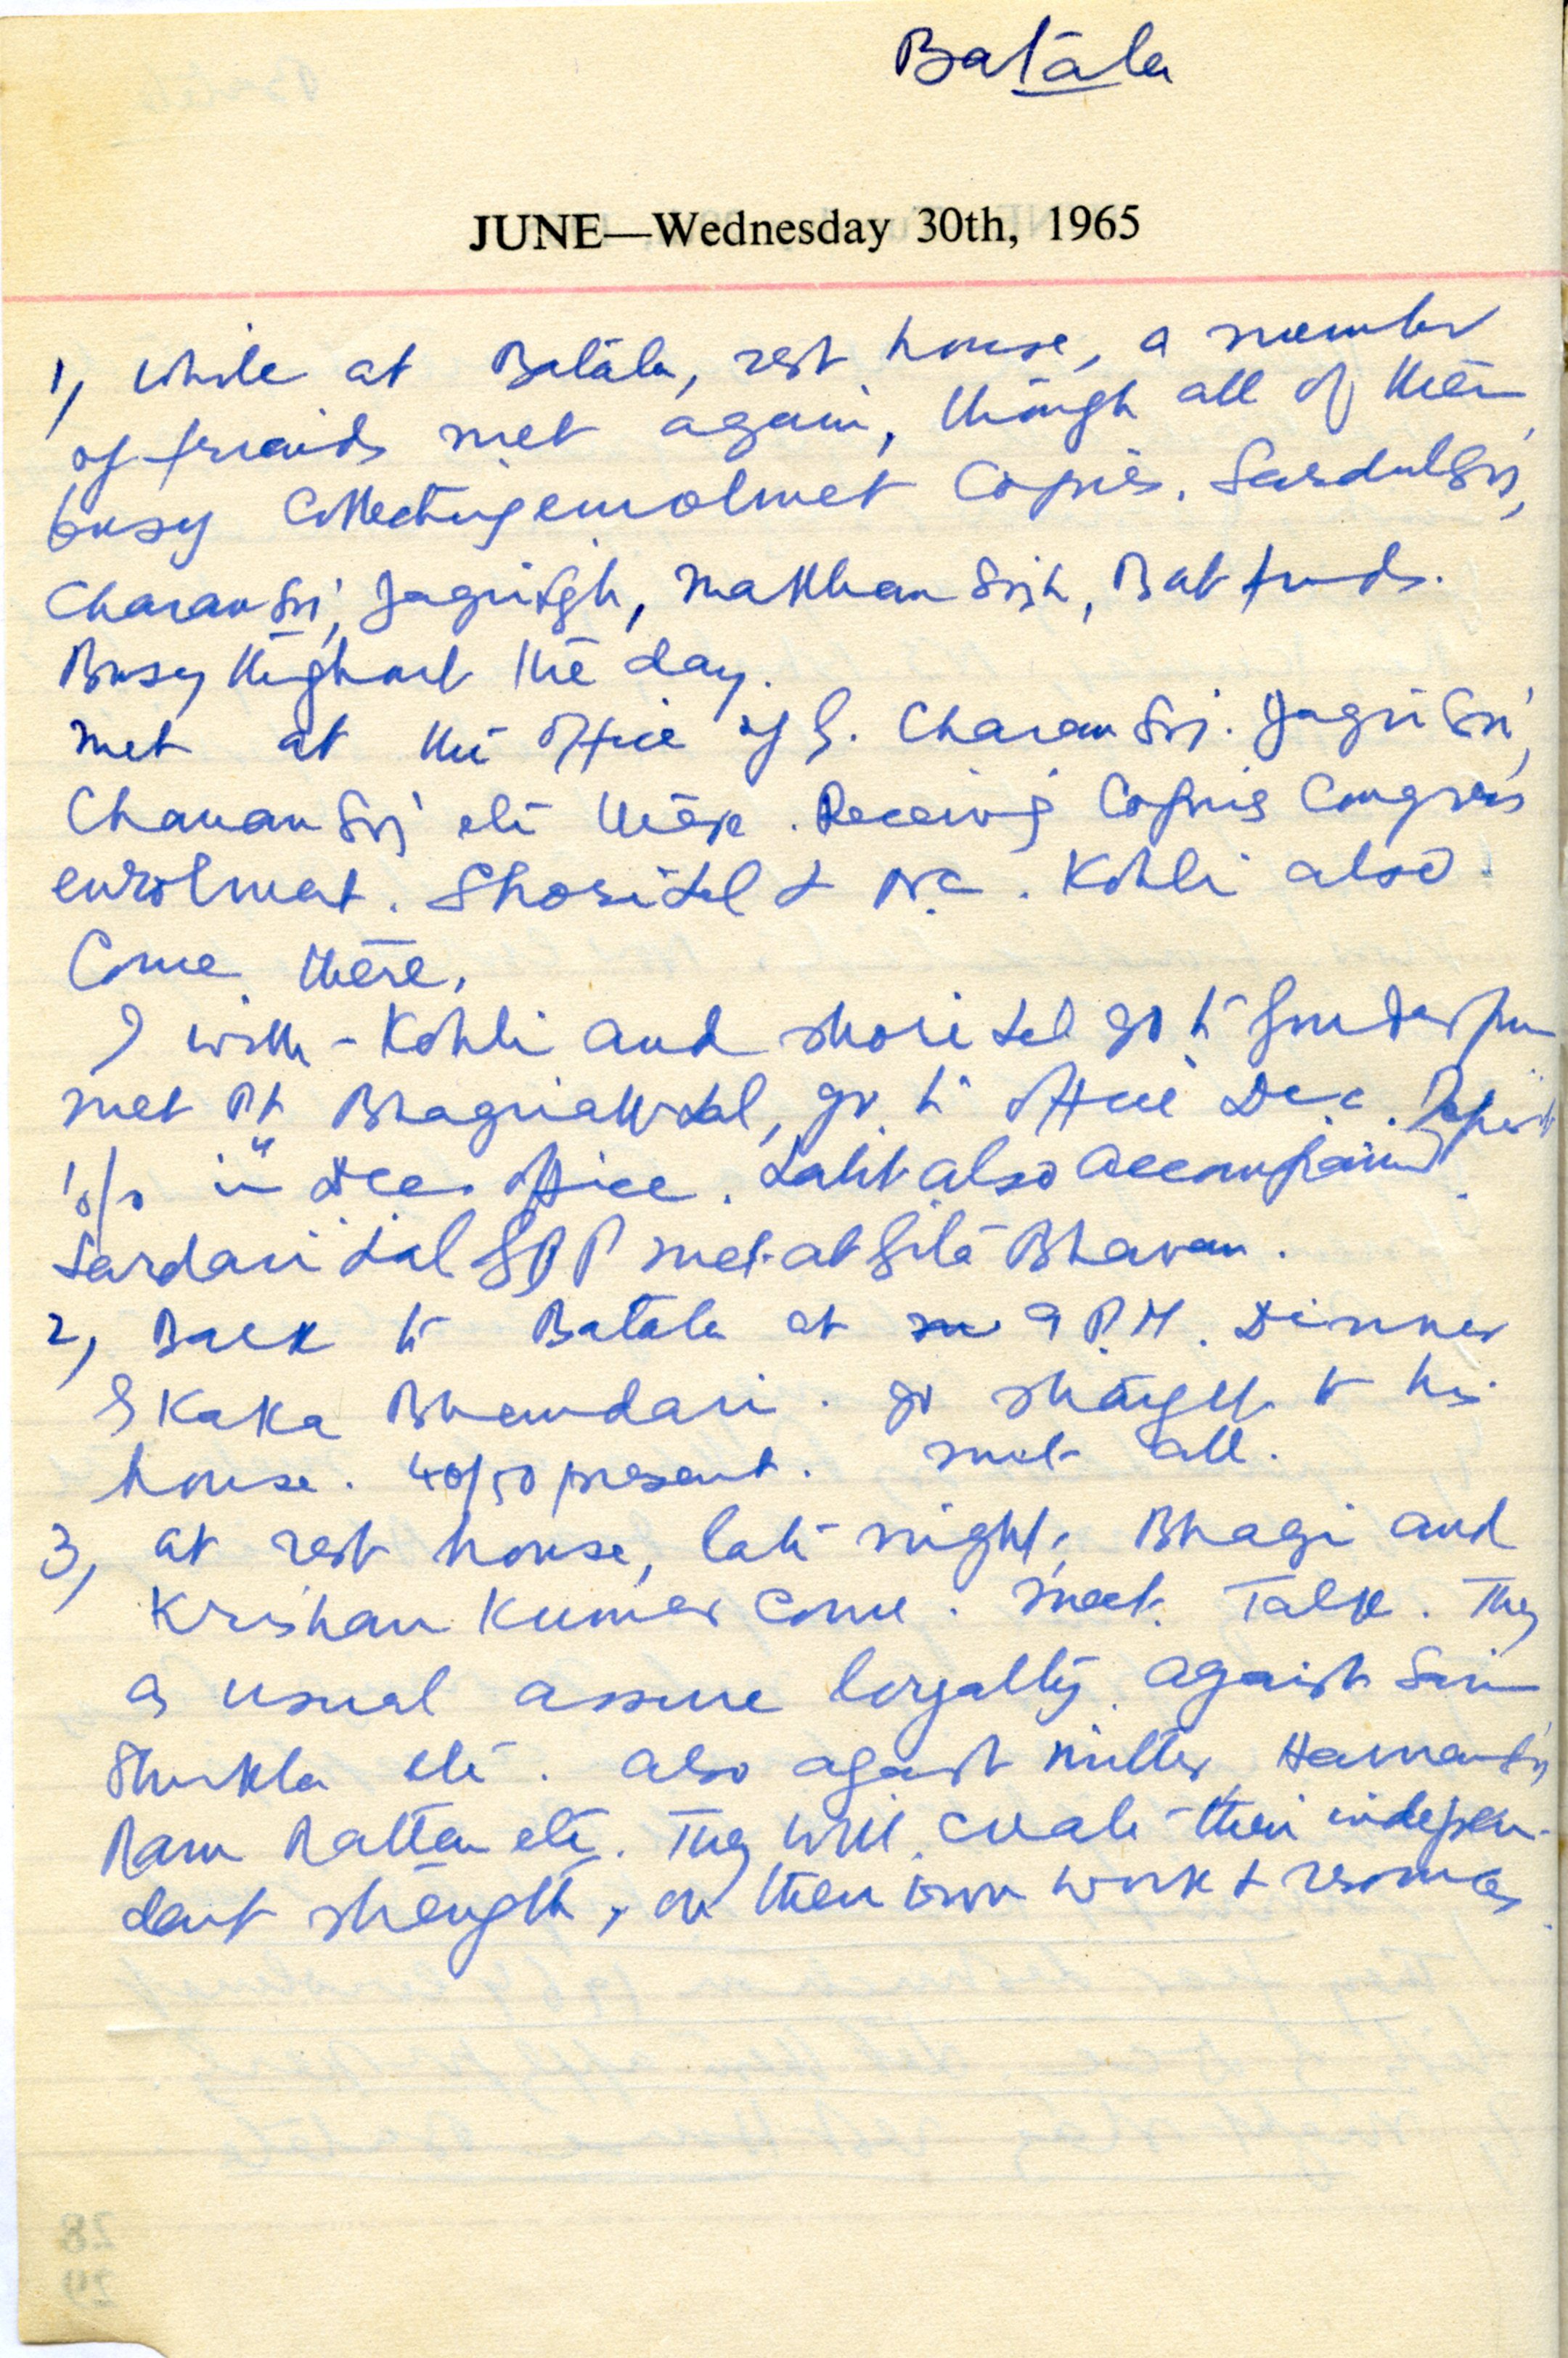 Batāla
JUNE—Wednesday 30th, 1965
1, While at Batāla, rest house, a number
of friends met again, though all of them
busy Collecting enrolmet Copies. Sardul Sij,
Charan Sij, Jagri Sgh, Makhan Sijh, But friends.
Busy thghout the day.
Met at the office of S. Charan Sij. Jagri Sij,
Chanan Sij etc there. Receiving Copies Congress
enrolmet. Shori Lal & N.C. Kohli also
Come there.
I with - Kohli and Shori Lal go to Gurdaspur
met Pt Bhagria Lal, go to office D.C.C. Deposit
in DCC office. Lalit also accompanied.
Sardari Lal met at Gitā Bhavan.
2, Back to Batāla at 9 P.M. Dinner
S Kaka Bhandari. go straight to his
house. 40/50 present. met all.
3, at rest house, late night, Bhagi and
Krishan Kumar come. Meet. Talk. They
as usual assure loyalty. against
Shukla etc. also against Mitter, Harnam Sij
Ram Rattan etc. They will create their indepen-
dant strength, on their own work & resources.
28
29